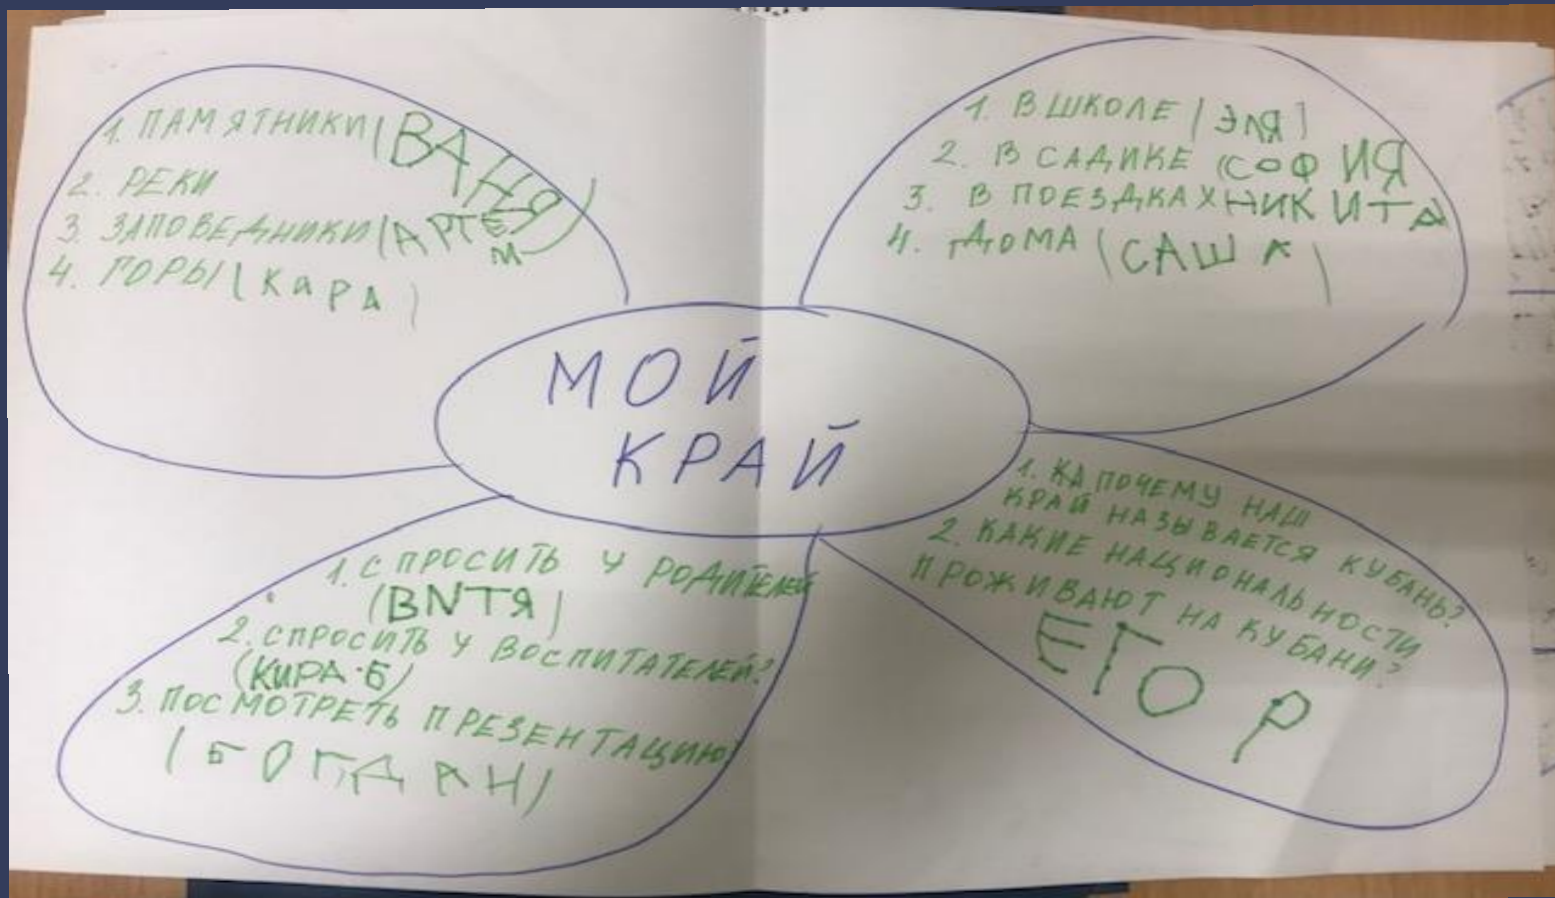 1. ПАМЯТНИКИ (ВАНЯ)
2. РЕКИ
3. ЗАПОВЕДНИКИ (АРТЕМ)
4. ГОРЫ (КАРА)
1. В ШКОЛЕ (ЭЛЯ)
2. В САДИКЕ (СОФИЯ
3. В ПОЕЗДКАХ НИКИТА
4. ДОМА (САША)
МОЙ
КРАЙ
1. СПРОСИТЬ У РОДИТЕЛЕЙ
(ВNТЯ)
2. СПРОСИТЬ У ВОСПИТАТЕЛЕЙ?
(КИРА·Б)
3. ПОСМОТРЕТЬ ПРЕЗЕНТАЦИЮ
(БОГДАН)
1. КД ПОЧЕМУ НАШ
КРАЙ НАЗЫВАЕТСЯ КУБАНЬ?
2. КАКИЕ НАЦИОНАЛЬНОСТИ
ПРОЖИВАЮТ НА КУБАНИ?
ЕГОР